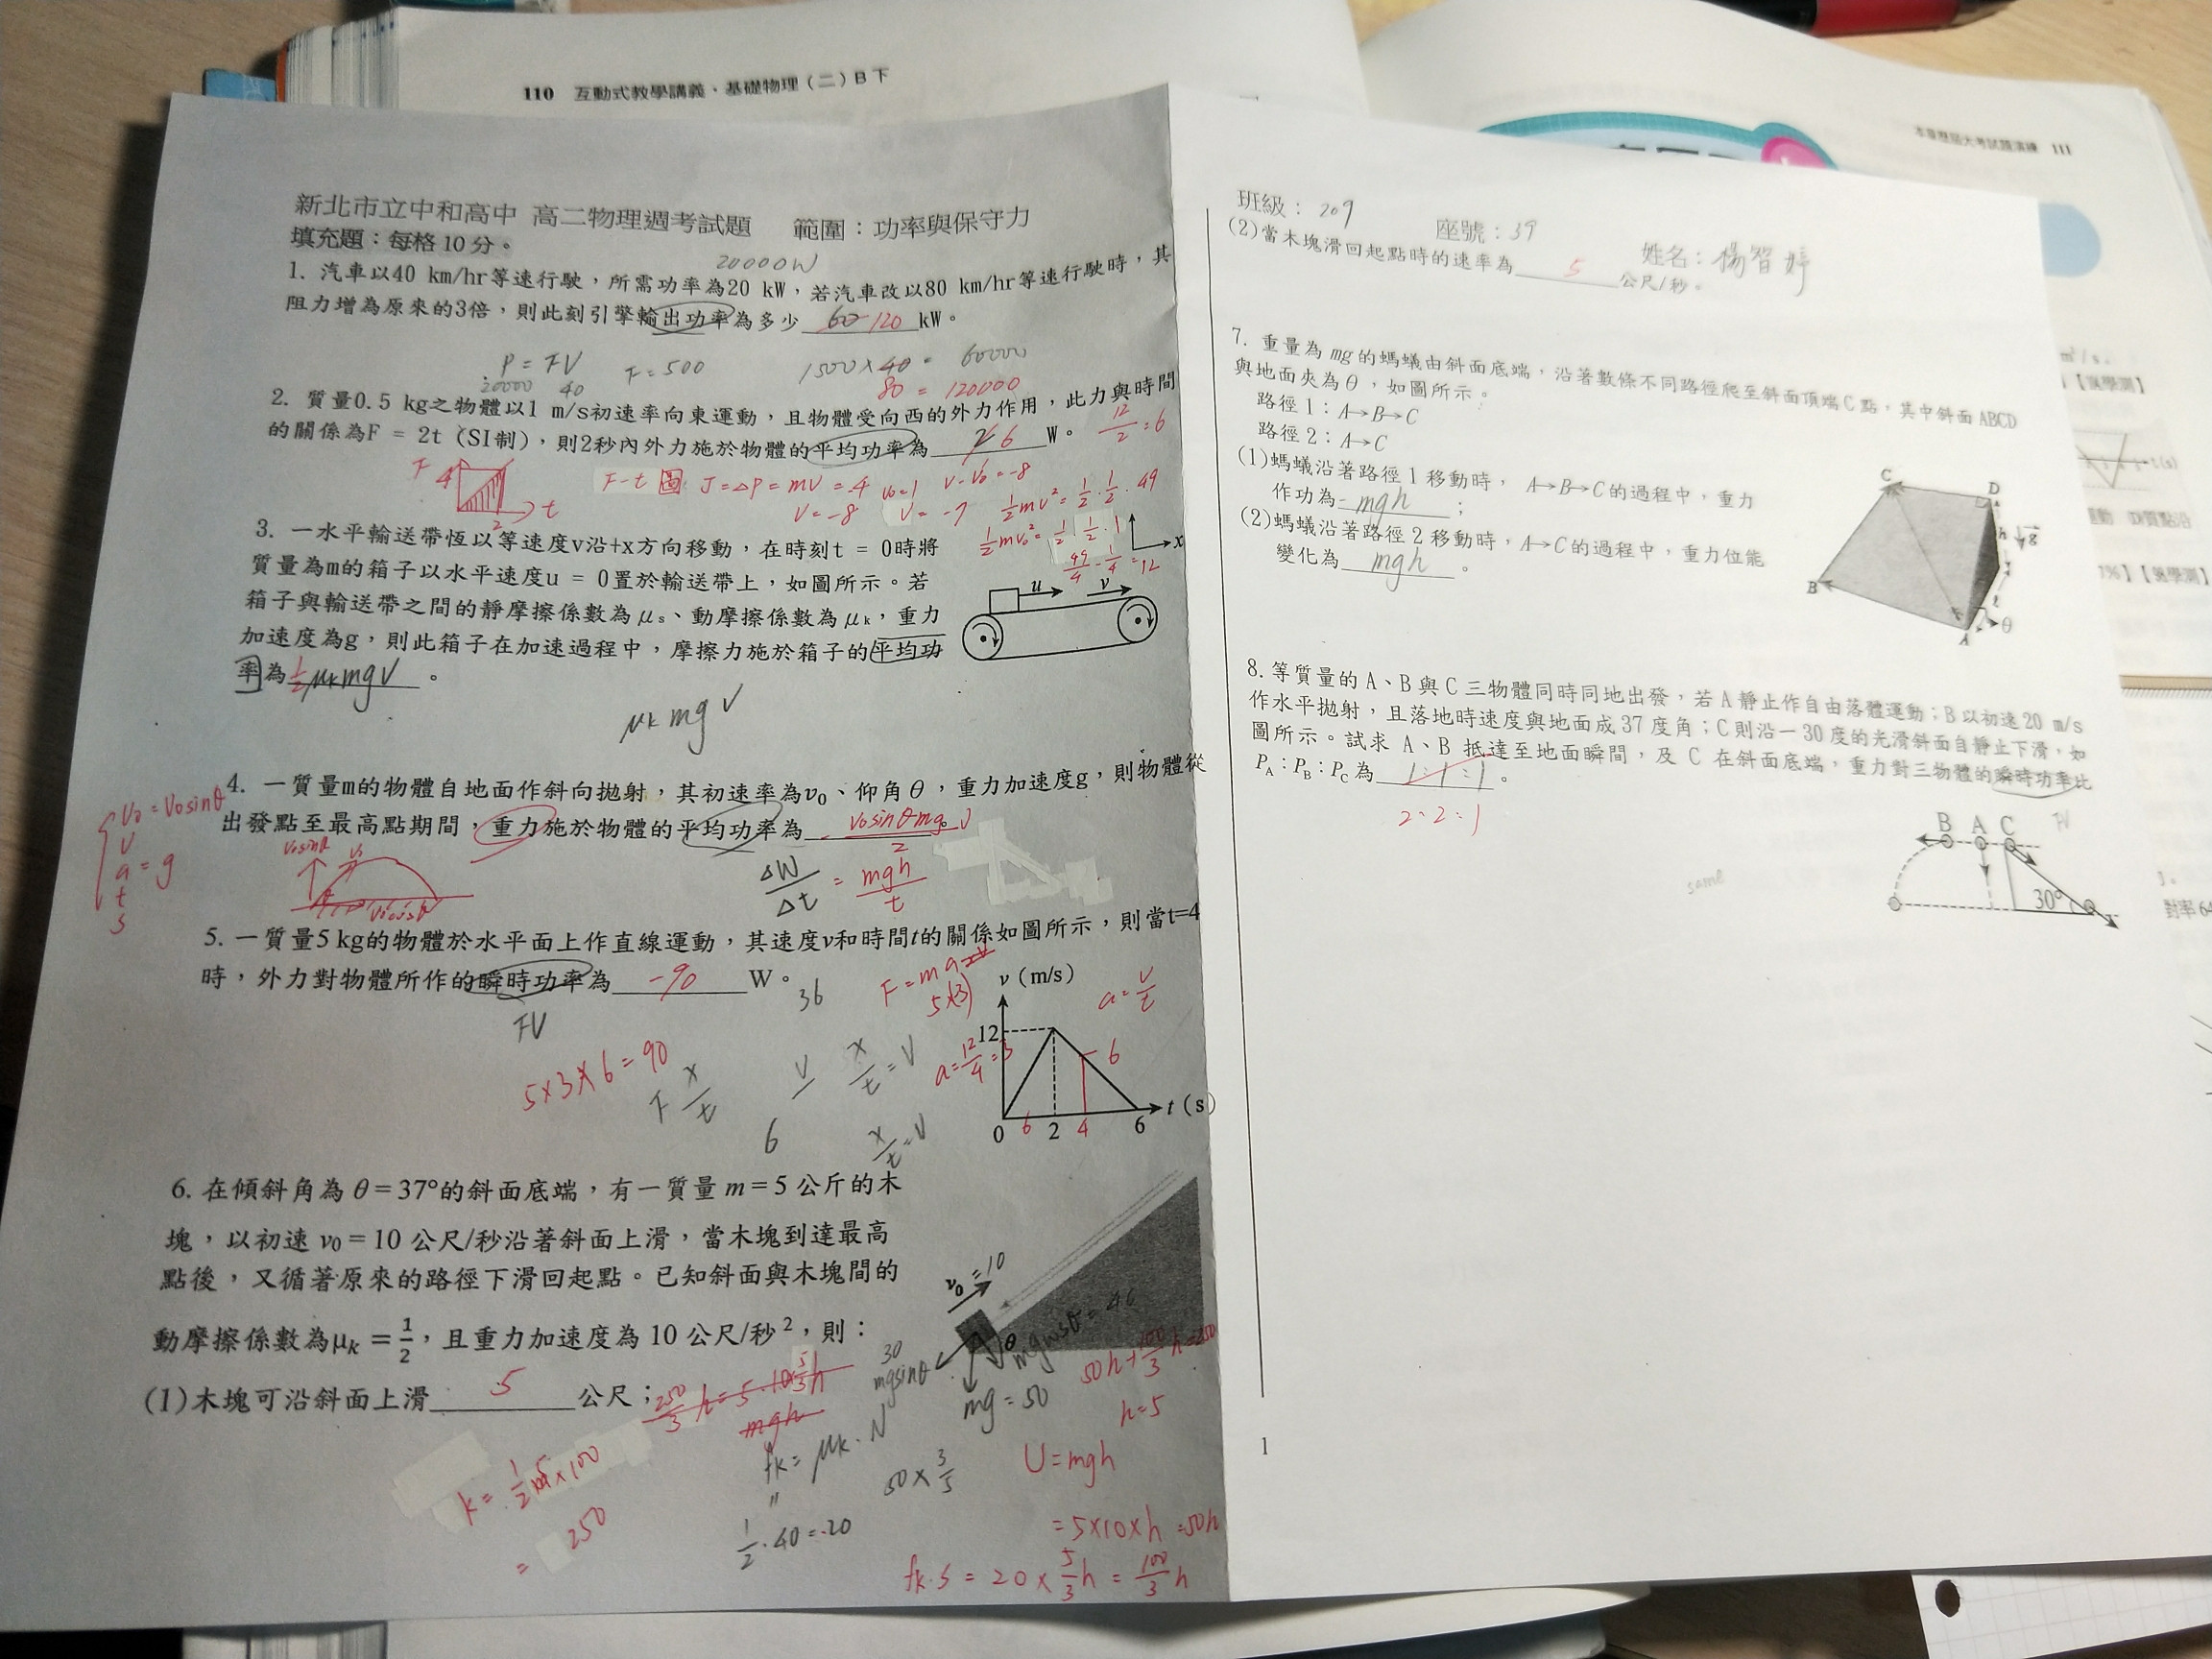 110 互動式教學講義、基礎物理（二）B下
本章歷屆大考試題演練 111
新北市立中和高中 高二物理週考試題 範圍：功率與保守力
填充題：每格10分。
20000W
1. 汽車以40 km/hr等速行駛，所需功率為20 kW，若汽車改以80 km/hr等速行駛時，其
阻力增為原來的3倍，則此刻引擎輸出功率為多少 60 120 kW。
P = FV F = 500 1500×40 = 60000
20000 40 80 = 120000
2. 質量0.5 kg之物體以1 m/s初速率向東運動，且物體受向西的外力作用，此力與時間
的關係為F = 2t（SI制），則2秒內外力施於物體的平均功率為 2 6 W。 12/2 = 6
F 4 t 2
F-t 圖 J = △P = mV = .4 V0=1 V-V0 = -8
V = -8 V = -7 1/2mV² = 1/2 · 1/2 · 49
1/2mV0² = 1/2 · 1/2 · 1
49/4 - 1/4 = 12
3. 一水平輸送帶恆以等速度v沿+x方向移動，在時刻t = 0時將
質量為m的箱子以水平速度u = 0置於輸送帶上，如圖所示。若
箱子與輸送帶之間的靜摩擦係數為μs、動摩擦係數為μk，重力
加速度為g，則此箱子在加速過程中，摩擦力施於箱子的平均功
率為 1/2 μk mg V 。
x
u v
μk mg V
4. 一質量m的物體自地面作斜向拋射，其初速率為v0、仰角θ，重力加速度g，則物體從
出發點至最高點期間，重力施於物體的平均功率為 - V0sinθmg/2 。
V0 = V0sinθ
V
a = g
t
s
V0sinθ V0 V0cosθ
△W/△t = mgh/t
5. 一質量5 kg的物體於水平面上作直線運動，其速度v和時間t的關係如圖所示，則當t=4
時，外力對物體所作的瞬時功率為 -90 W。
FV 36
F = ma
5(3)
a = V/t
5×3×6 = 90
F x/t
V x/t = V
a = 12/4 = 3
6
x/t = V
v（m/s）
12
6
0 6 2 4 6 t（s）
6. 在傾斜角為 θ = 37°的斜面底端，有一質量 m = 5 公斤的木
塊，以初速 v0 = 10 公尺/秒沿著斜面上滑，當木塊到達最高
點後，又循著原來的路徑下滑回起點。已知斜面與木塊間的
動摩擦係數為μk = 1/2，且重力加速度為 10 公尺/秒²，則：
(1)木塊可沿斜面上滑 5 公尺；
v0 = 10
θ
30
mgsinθ
mgcosθ = 40
mg = 50
250/3 h = 5·10·5/3h
mgh
50h + 100/3 h = 250
h = 5
fk = μk · N
50 × 3/5
U = mgh
k = 1/2 · 5 × 100
= 250
1/2 · 40 = 20
= 5×10×h = 50h
fk·S = 20 × 5/3 h = 100/3 h
班級：209 座號：39 姓名：楊智婷
(2)當木塊滑回起點時的速率為 5 公尺/秒。
7. 重量為 mg 的螞蟻由斜面底端，沿著數條不同路徑爬至斜面頂端C點，其中斜面ABCD
與地面夾為θ，如圖所示。
路徑1：A→B→C
路徑2：A→C
(1)螞蟻沿著路徑1移動時， A→B→C的過程中，重力
作功為 -mgh ；
(2)螞蟻沿著路徑2移動時，A→C的過程中，重力位能
變化為 mgh 。
C D
h g
B
ℓ
A θ
8. 等質量的A、B與C三物體同時同地出發，若A靜止作自由落體運動；B以初速20 m/s
作水平拋射，且落地時速度與地面成37度角；C則沿一30度的光滑斜面自靜止下滑，如
圖所示。試求A、B抵達至地面瞬間，及C在斜面底端，重力對三物體的瞬時功率比
PA：PB：PC為 1:1:1 。
2:2:1
FV
same
B A C
30°
1